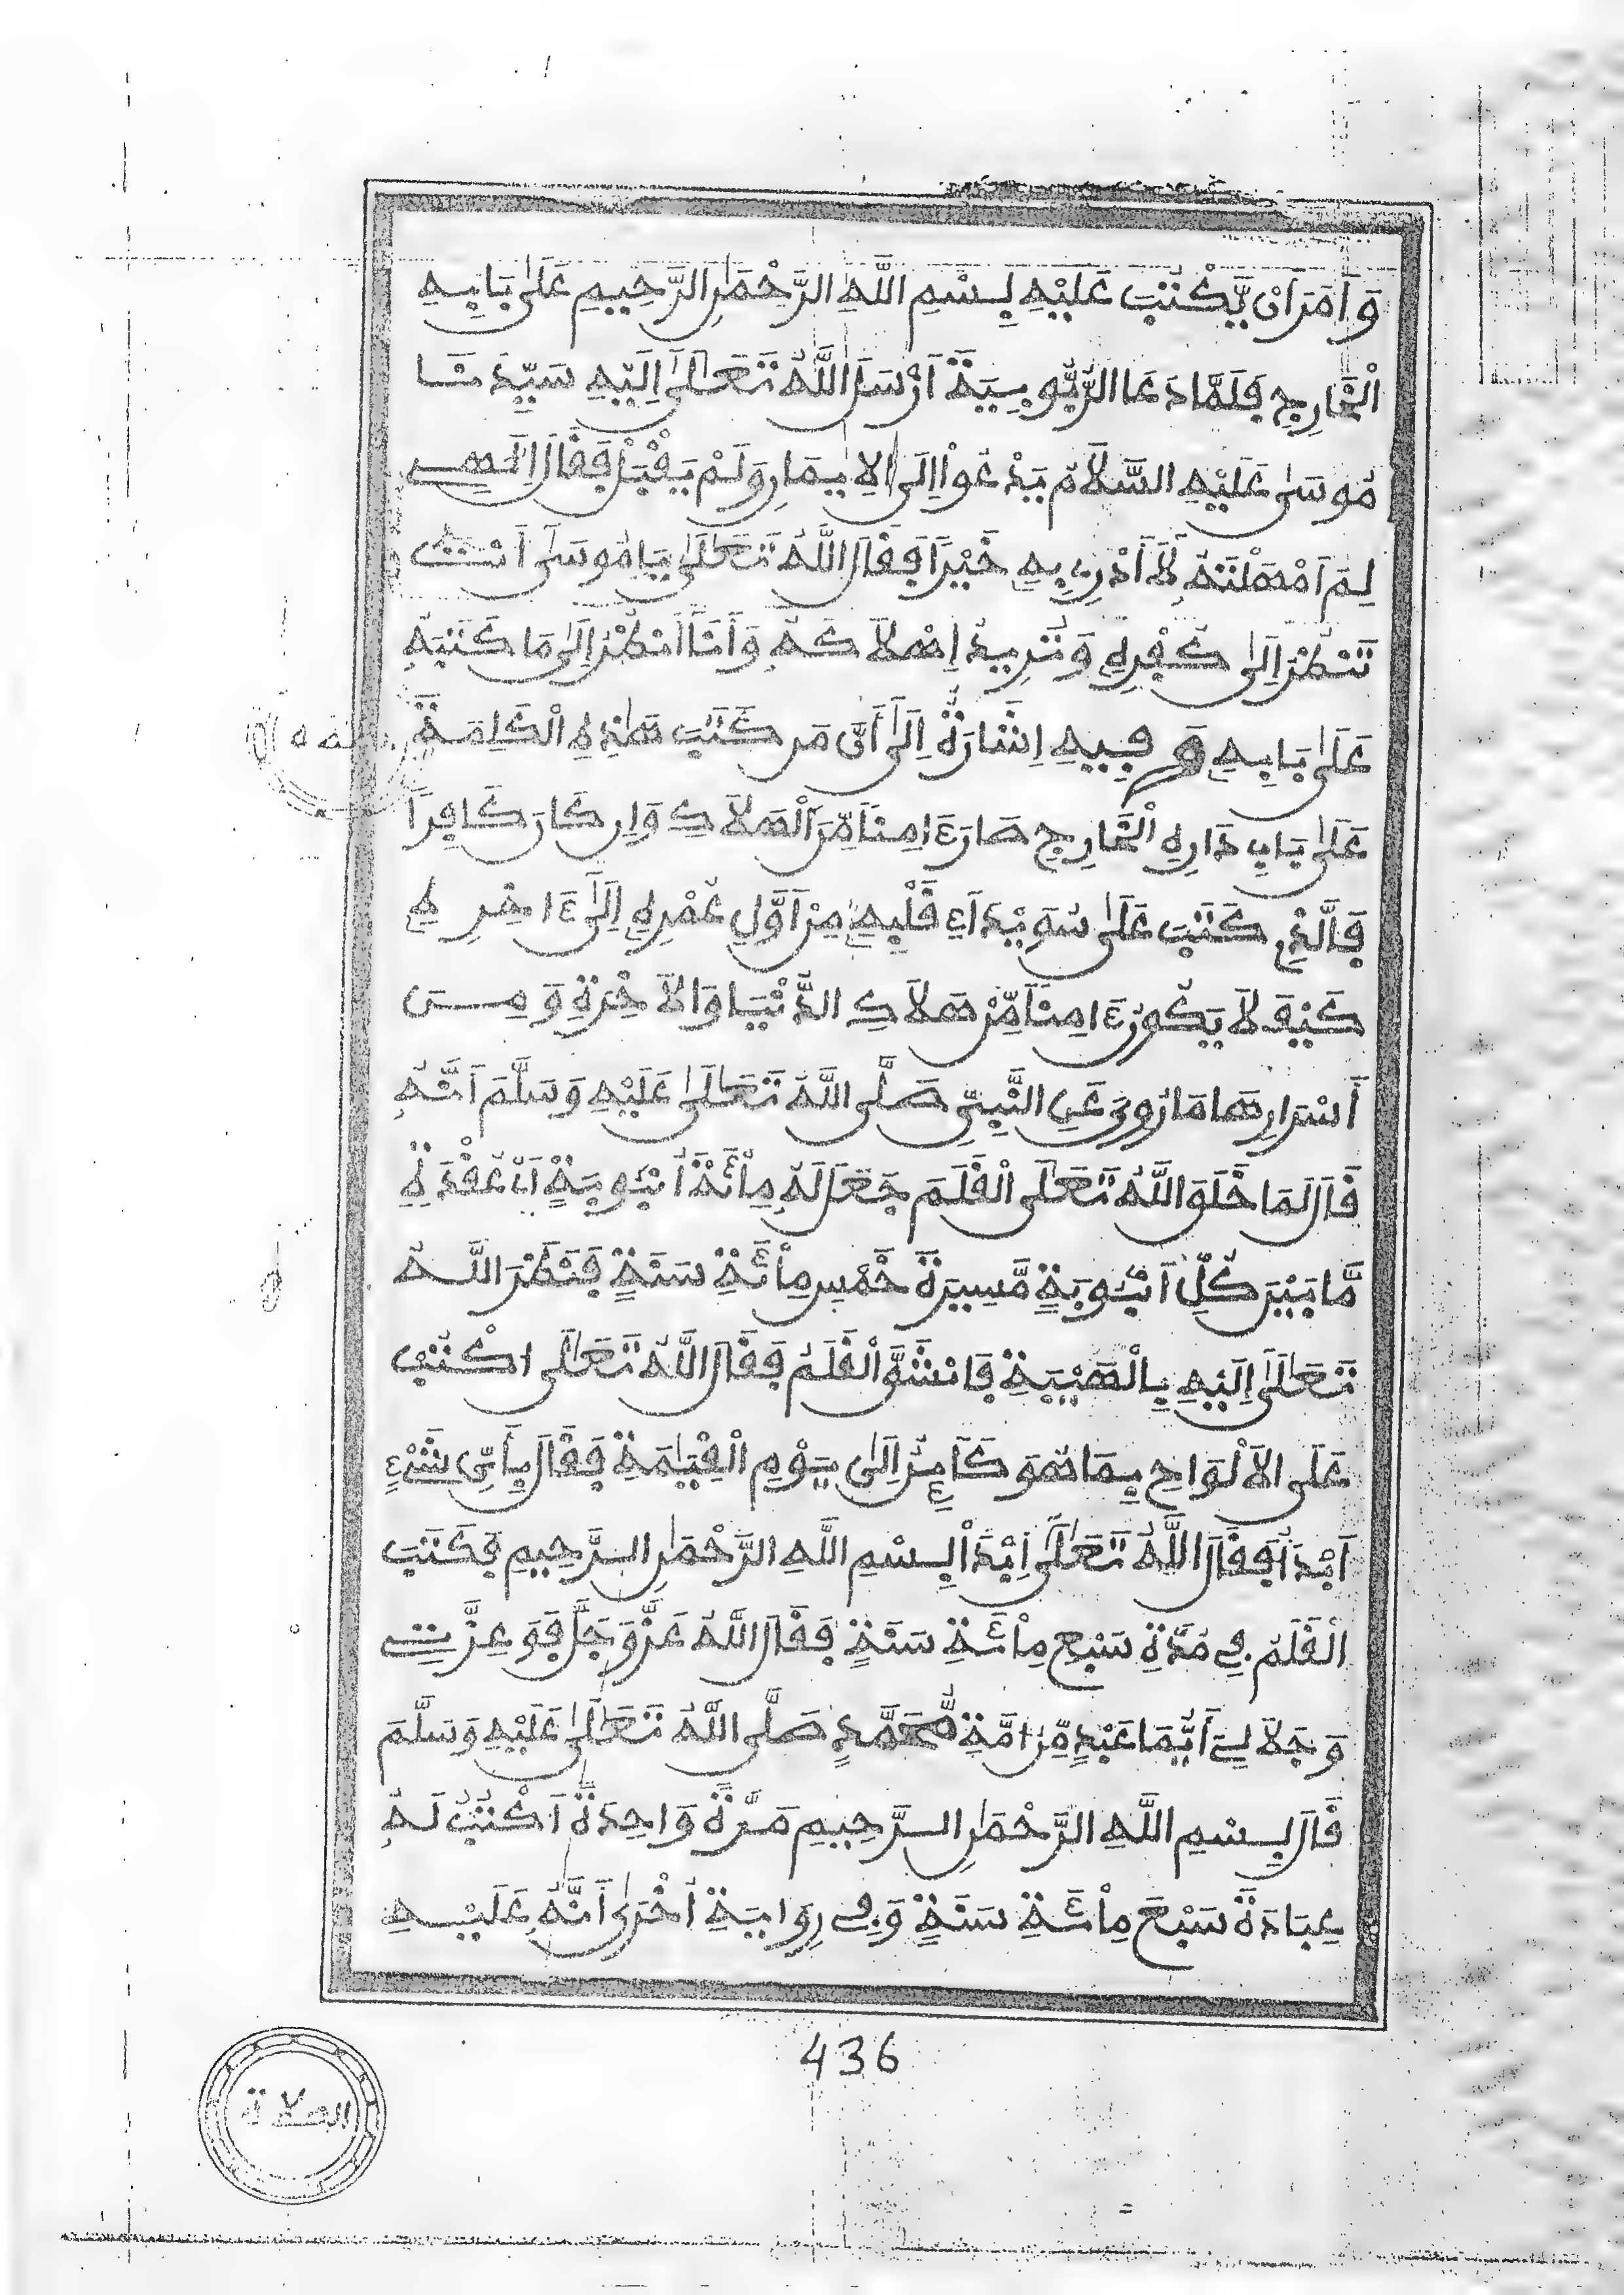 وَأَمَرَ أَنْ يُّكْتَبَ عَلَيْهِ بِسْمِ اللَّهِ الرَّحْمَٰنِ الرَّحِيمِ عَلَىٰ بَابِهِ
الْخَارِجِ فَلَمَّا دَعَا الرُّبُوبِيَةَ أَرْسَلَ اللَّهُ تَعَالَىٰ إِلَيْهِ سَيِّدَنَا
مُوسَىٰ عَلَيْهِ السَّلَامُ يَدْعُوا إِلَى الْإِيمَانِ وَلَمْ يَقْبَلْ فَقَالَ إِلَٰهِي
لِمَ أَمْهَلْتَهُ لَا أَدْرِي بِهِ خَيْرًا فَقَالَ اللَّهُ تَعَالَىٰ يَا مُوسَىٰ أَنْتَ
تَنْظُرُ إِلَىٰ كُفْرِهِ وَتُرِيدُ إِهْلَاكَهُ وَأَنَا أَنْظُرُ إِلَىٰ مَا كَتَبَهُ
عَلَىٰ بَابِهِ وَفِيهِ إِشَارَةٌ إِلَىٰ أَنَّ مَن كَتَبَ هَٰذِهِ الْكَلِمَةَ
عَلَىٰ بَابِ دَارِهِ الْخَارِجِ صَارَ ءَامِنًا مِّنَ الْهَلَاكِ وَإِن كَانَ كَافِرًا
فَالَّذِي كَتَبَ عَلَىٰ سُوَيْدَاءِ قَلْبِهِ مِنْ أَوَّلِ عُمْرِهِ إِلَىٰ ءَاخِرِهِ
كَيْفَ لَا يَكُونُ ءَامِنًا مِّنْ هَلَاكِ الدُّنْيَا وَالْآخِرَةِ وَمِنَ
أَسْرَارِهَا مَا رُوِيَ عَنِ النَّبِيِّ صَلَّى اللَّهُ تَعَالَىٰ عَلَيْهِ وَسَلَّمَ أَنَّهُ
قَالَ لَمَا خَلَقَ اللَّهُ تَعَالَى الْقَلَمَ جَعَلَ لَهُ مِائَةَ أُنْبُوبَةٍ أَنْ عُقْدَةِ
مَّا بَيْنَ كُلِّ أُنْبُوبَةٍ مَّسِيرَةَ خَمْسِ مِائَةِ سَنَةٍ فَنَظَرَ اللَّهُ
تَعَالَىٰ إِلَيْهِ بِالْهَيْبَةِ فَانْشَقَّ الْقَلَمُ فَقَالَ اللَّهُ تَعَالَى اكْتُبْ
عَلَى الْأَلْوَاحِ بِمَا هُوَ كَائِنٌ إِلَىٰ يَوْمِ الْقِيَٰمَةِ فَقَالَ بِأَيِّ شَيْءٍ
أَبْدَأُ فَقَالَ اللَّهُ تَعَالَىٰ اِبْدَأْ بِسْمِ اللَّهِ الرَّحْمَٰنِ الرَّحِيمِ فَكَتَبَ
الْقَلَمُ فِي مُدَّةِ سَبْعِ مِائَةِ سَنَةٍ فَقَالَ اللَّهُ عَزَّ وَجَلَّ فَوَعِزَّتِي
وَجَلَالِي أَيُّمَا عَبْدٍ مِّنْ أُمَّةِ مُّحَمَّدٍ صَلَّى اللَّهُ تَعَالَىٰ عَلَيْهِ وَسَلَّمَ
قَالَ بِسْمِ اللَّهِ الرَّحْمَٰنِ الرَّحِيمِ مَرَّةً وَاحِدَةً أَكْتُبُ لَهُ
عِبَادَةَ سَبْعَ مِائَةِ سَنَةٍ وَفِي رِوَايَةٍ أُخْرَىٰ أَنَّهُ عَلَيْهِ
436
الصلاة